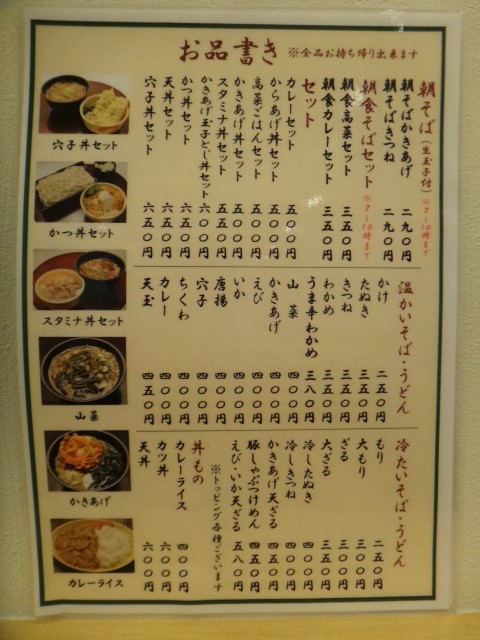 お品書き ※全品お持ち帰り出来ます
朝そば(生玉子付) ※7〜10時まで
朝そばかきあげ 二九〇円
朝そばきつね 二九〇円
朝食そばセット ※7〜10時まで
朝食高菜セット 三五〇円
朝食カレーセット 三五〇円
セット
カレーセット 五〇〇円
からあげ丼セット 五〇〇円
高菜ごはんセット 五〇〇円
かきあげ丼セット 五五〇円
スタミナ丼セット 五五〇円
かきあげ玉子とじ丼セット 六〇〇円
かつ丼セット 六五〇円
天丼セット 六五〇円
穴子丼セット 六五〇円
温かいそば・うどん
かけ 二五〇円
たぬき 三五〇円
きつね 三五〇円
わかめ 三五〇円
うま辛わかめ 三八〇円
山菜 四〇〇円
かきあげ 四〇〇円
えび 四〇〇円
いか 四〇〇円
唐揚 四〇〇円
穴子 四〇〇円
ちくわ 四〇〇円
カレー 四〇〇円
天玉 四五〇円
冷たいそば・うどん
もり 二五〇円
大もり 三〇〇円
ざる 三〇〇円
大ざる 三五〇円
冷したぬき 四〇〇円
冷しきつね 四〇〇円
かきあげ天ざる 四五〇円
豚しゃぶつけめん 四五〇円
えび・いか天ざる 五八〇円
※トッピング各種ございます
丼もの
カレーライス 四〇〇円
カツ丼 六〇〇円
天丼 六〇〇円
穴子丼セット
かつ丼セット
スタミナ丼セット
山菜
かきあげ
カレーライス